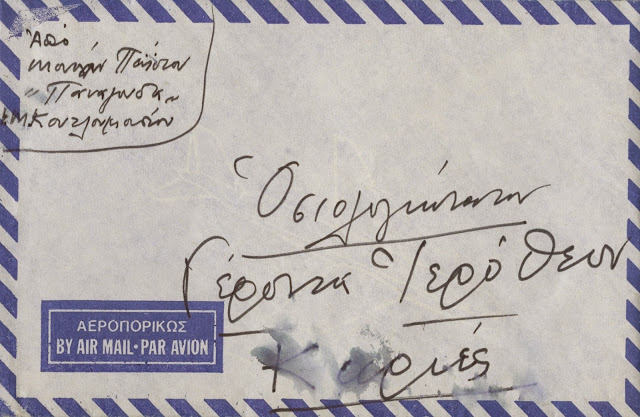 Ἀπό
μοναχόν Παΐσιον
"Παναγούδα"
Κουτλουμουσίου
Ὁσιολογιώτατον
Γέροντα Ἱερόθεον
Καρυές
ΑΕΡΟΠΟΡΙΚΩΣ
BY AIR MAIL·PAR AVION